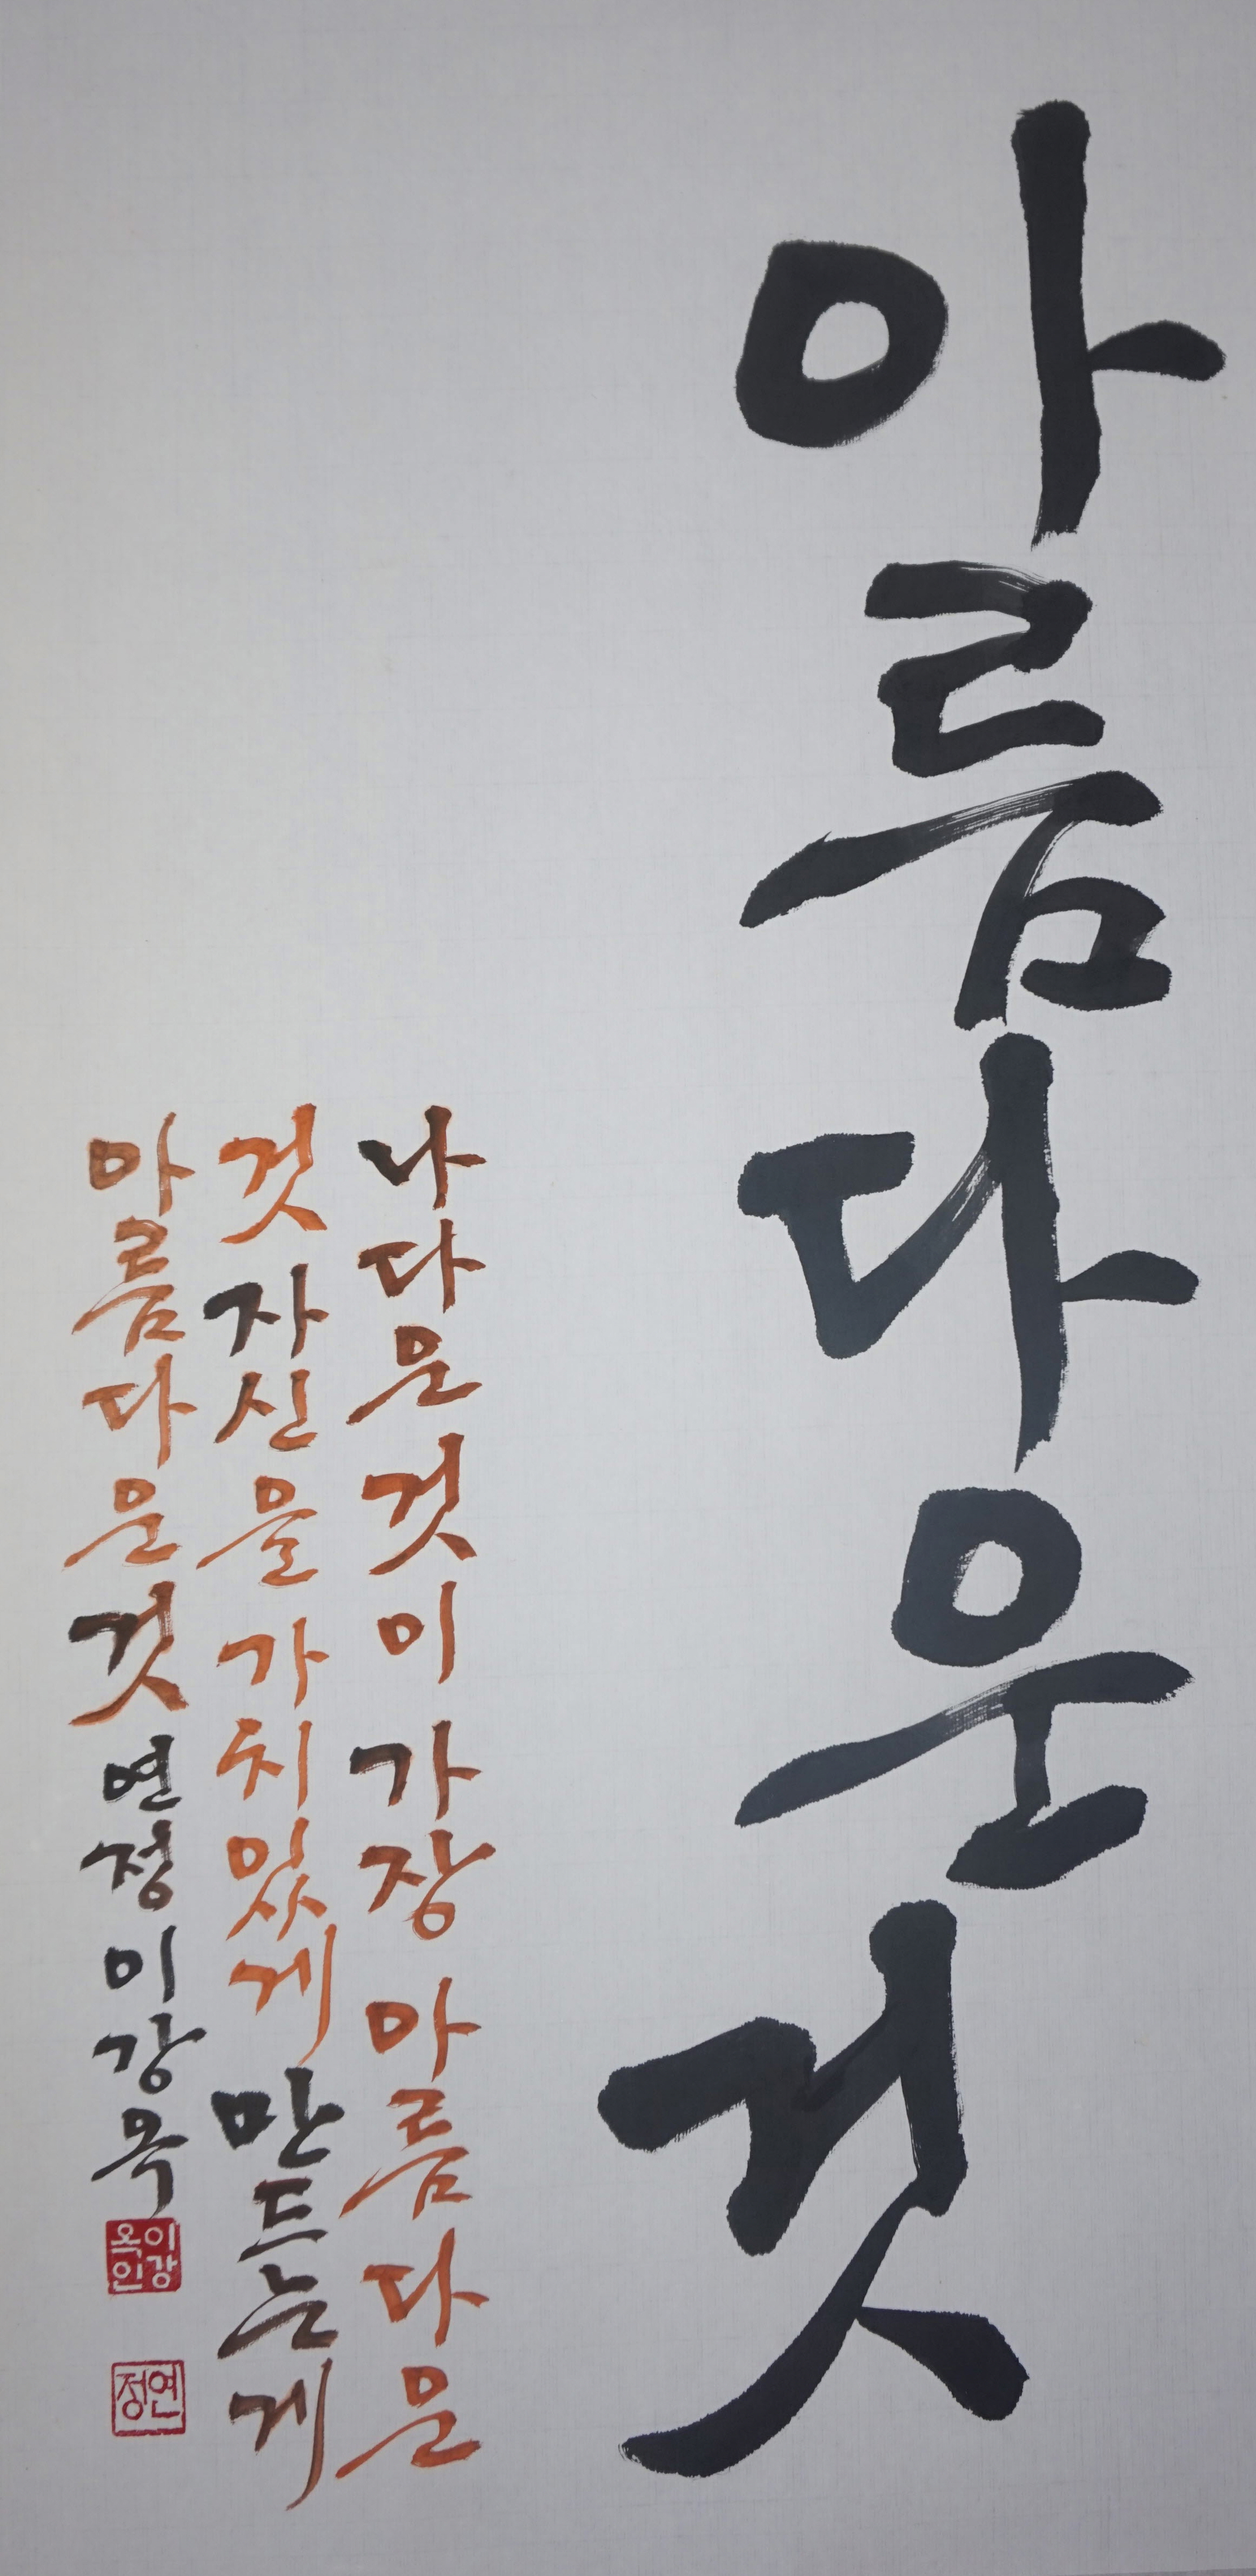 아름다운것
나다운것이 가장 아름다운
것 자신을 가치있게 만드는게
아름다운것 연정 이강옥
이강옥인
연정